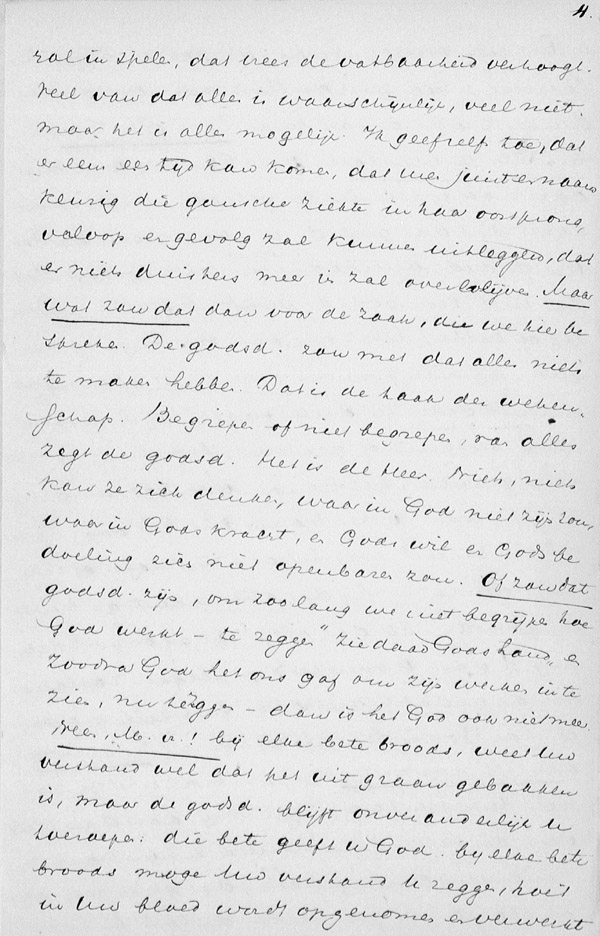 4.
zal in spelen, dat vrees de vatbaarheid verhoogt.
Veel van dat alles is waarschijnlijk, veel niet.
maar het is alles mogelijk. Ik geef zelf toe, dat
er eens een tijd kan komen, dat men juist en nauw
keurig die gansche ziekte in haar oorsprong,
verloop en gevolg zal kunnen uitleggen, dat
er niets duisters meer in zal overblijven. Maar
wat zou dat dan voor de zaak, die we hier be
spreken. De godsd. zou met dat alles niets
te maken hebben. Dat is de taak der weten-
schap. Begrepen of niet begrepen, van alles
zegt de godsd. Het is de Heer. Niets, niets
kan ze zich denken, waar in God niet zijn zou,
waar in Gods kracht, en Gods wil en Gods be
doeling zich niet openbaren zou. Of zou dat
godsd. zijn, om zoolang we niet begrijpen hoe
God werkt – te zeggen "zie daar Gods hand", en
zoodra God het ons gaf om zijn werken in te
zien, nu te zeggen – dan is het God ook niet meer.
Neen, M. u.! bij elke bete broods, weet Uw
verstand wel dat het uit graan gebakken
is, maar de godsd. blijft onveranderlijk U
toeroepen: die bete geeft U God. bij elke bete
broods moge Uw verstand U zeggen, hoe 't
in Uw bloed wordt opgenomen en verwerkt